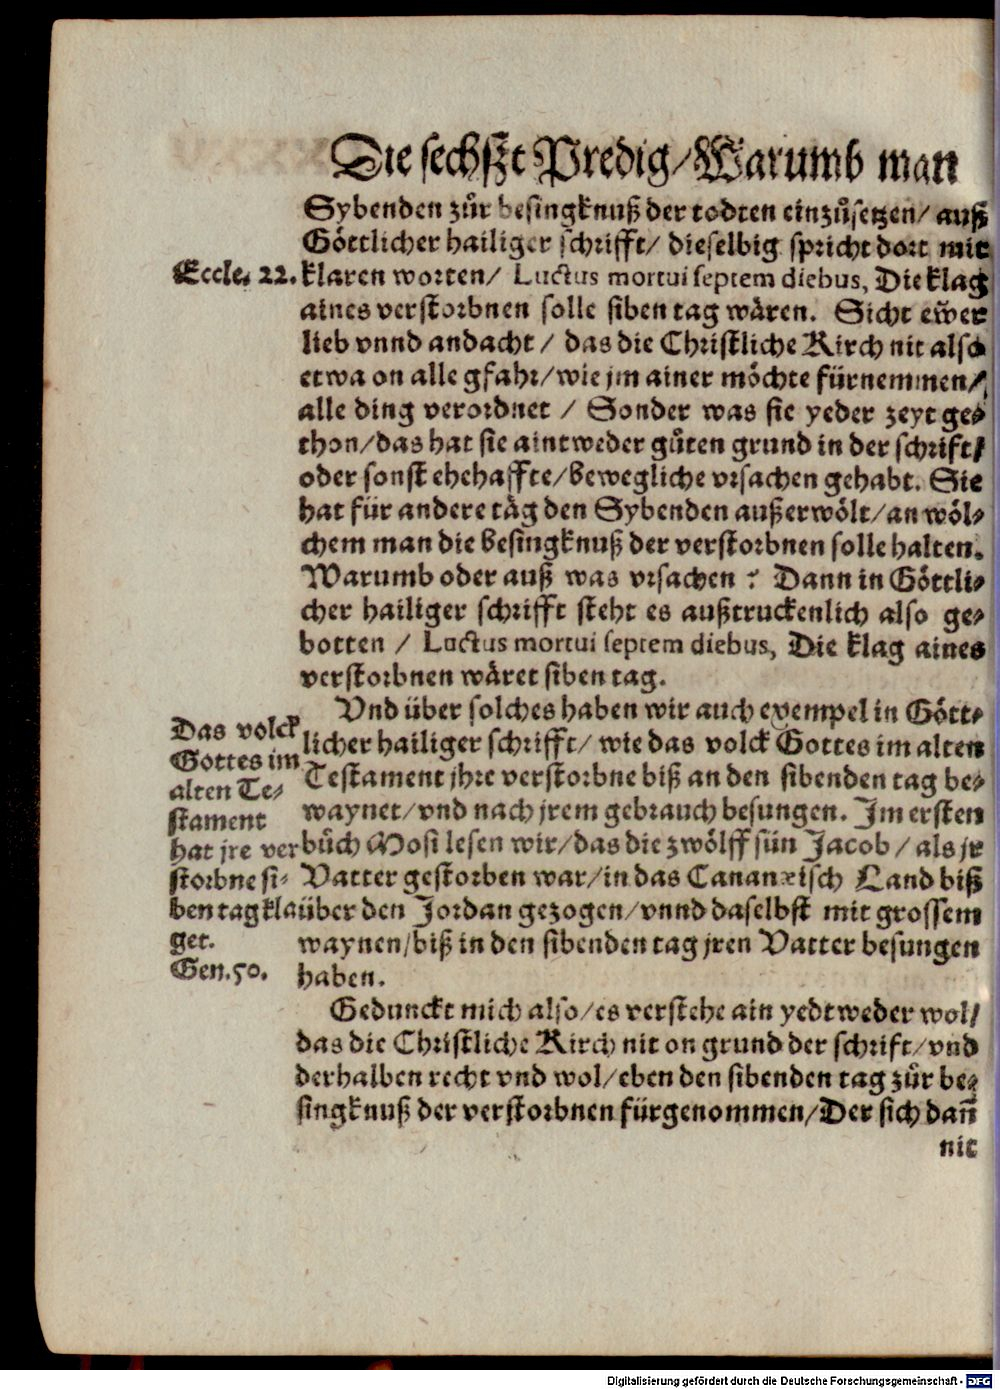 Die sechßt Predig/Warumb man
Sybenden zůr besingknuß der todten einzůsetzen/ auß
Göttlicher hailiger schrifft/ dieselbig spricht dort mit
Eccle. 22.
klaren worten/ Luctus mortui septem diebus, Die klag
aines verstorbnen solle siben tag wären. Sicht ew̃er
lieb vnnd andacht / das die Christliche Kirch nit also
etwa on alle gfahr/wie jm ainer möchte fürnemmen/
alle ding verordnet / Sonder was sie yeder zeyt ge⸗
thon/das hat sie aintweder gůten grund in der schrift/
oder sonst ehehaffte/bewegliche vrsachen gehabt. Sie
hat für andere täg den Sybenden außerwölt/an wöl⸗
chem man die besingknuß der verstorbnen solle halten.
Warumb oder auß was vrsachen ? Dann in Göttli⸗
cher hailiger schrifft steht es außtruckenlich also ge⸗
botten / Luctus mortui septem diebus, Die klag aines
verstorbnen wäret siben tag.
Vnd über solches haben wir auch exempel in Gött⸗
licher hailiger schrifft/ wie das volck Gottes im alten
Testament jhre verstorbne biß an den sibenden tag be⸗
waynet/vnd nach jrem gebrauch besungen. Im ersten
bůch Mosi lesen wir/das die zwölff sün Jacob / als jr
Vatter gestorben war/in das Cananæisch Land biß
über den Jordan gezogen/vnnd daselbst mit grossem
waynen/biß in den sibenden tag jren Vatter besungen
haben.
Das volck
Gottes im
alten Te⸗
stament
hat jre ver
storbne si⸗
ben tag kla
get.
Gen.50.
Gedunckt mich also/es verstehe ain yedtweder wol/
das die Christliche Kirch nit on grund der schrift/vnd
derhalben recht vnd wol/eben den sibenden tag zůr be⸗
singknuß der verstorbnen fürgenommen/Der sich dañ
nit
Digitalisierung gefördert durch die Deutsche Forschungsgemeinschaft - DFG